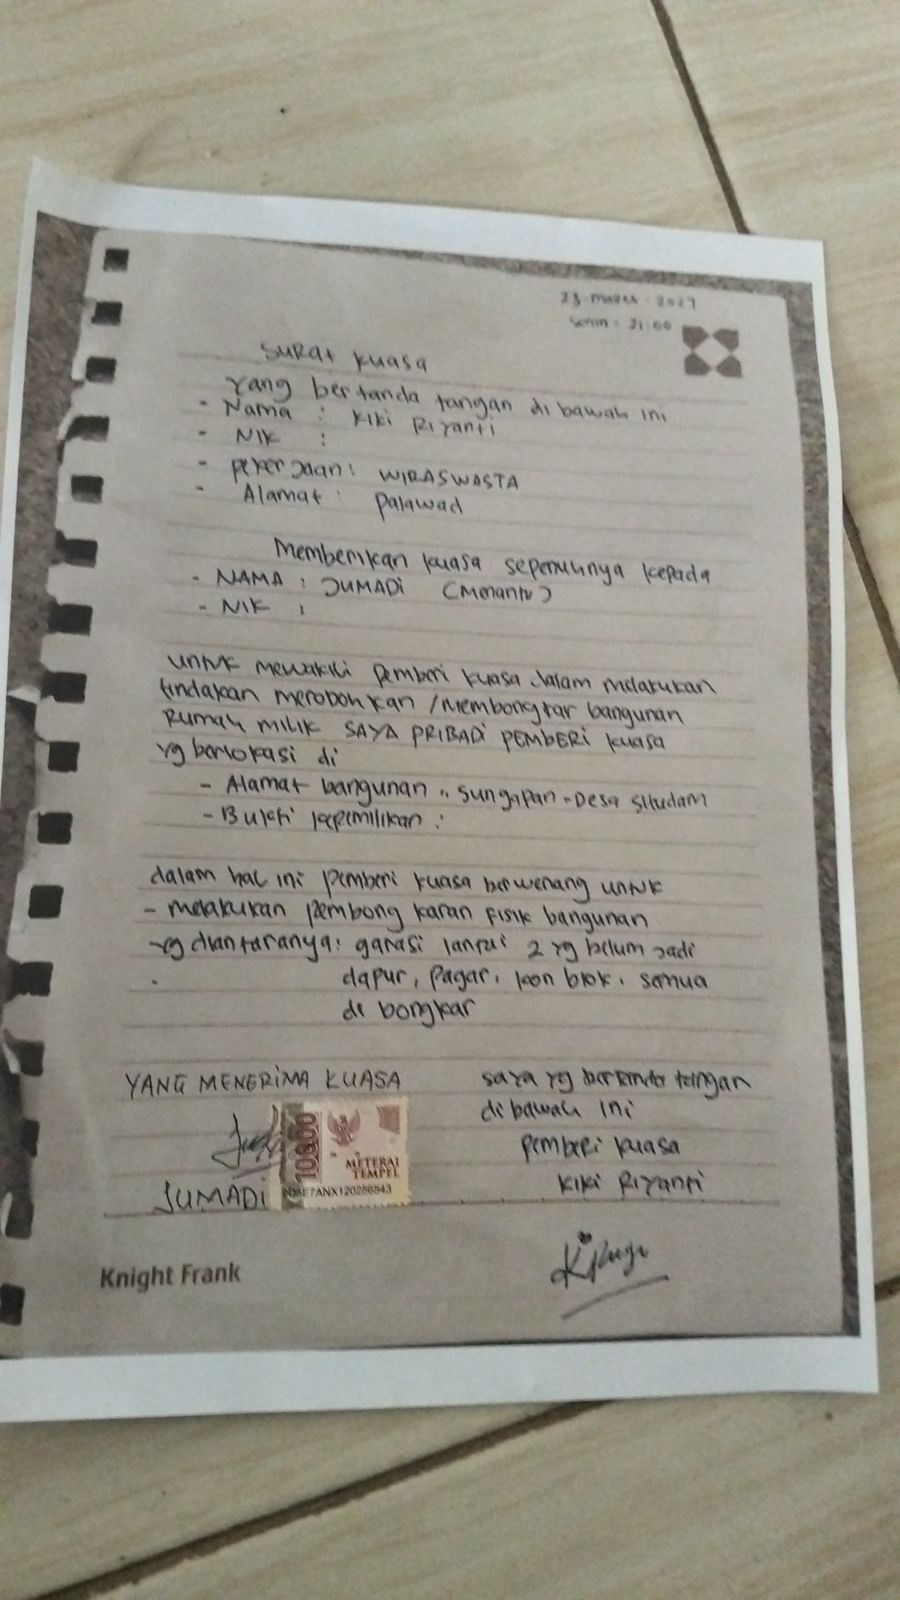 23 Maret 2027
Senin : 21:00
Surat Kuasa
Yang bertanda tangan di bawah ini
- Nama : Kiki Riyanti
- NIK :
- Pekerjaan : WIRASWASTA
- Alamat : Palawad
Memberikan kuasa sepenuhnya kepada
- NAMA : JUMADi (Menantu)
- NIK :
untuk mewakili pemberi kuasa dalam melakukan
tindakan merobohkan /Membongkar bangunan
Rumah MILIK SAYA PRIBADI PEMBERI kuasa
yg berlokasi di
- Alamat bangunan : Sungapan - Desa
- Bukti kepemilikan :
dalam hal ini pemberi kuasa berwenang untuk
- melakukan pembongkaran fisik bangunan
yg diantaranya : garasi lantai 2 yg belum jadi
dapur, pagar, kon blok, semua
di bongkar
YANG MENERIMA KUASA
saya yg bertanda tangan
dibawah ini
pemberi kuasa
Kiki Riyanti
10000
METERAI
TEMPEL
7ANX120256543
JUMADI
Knight Frank